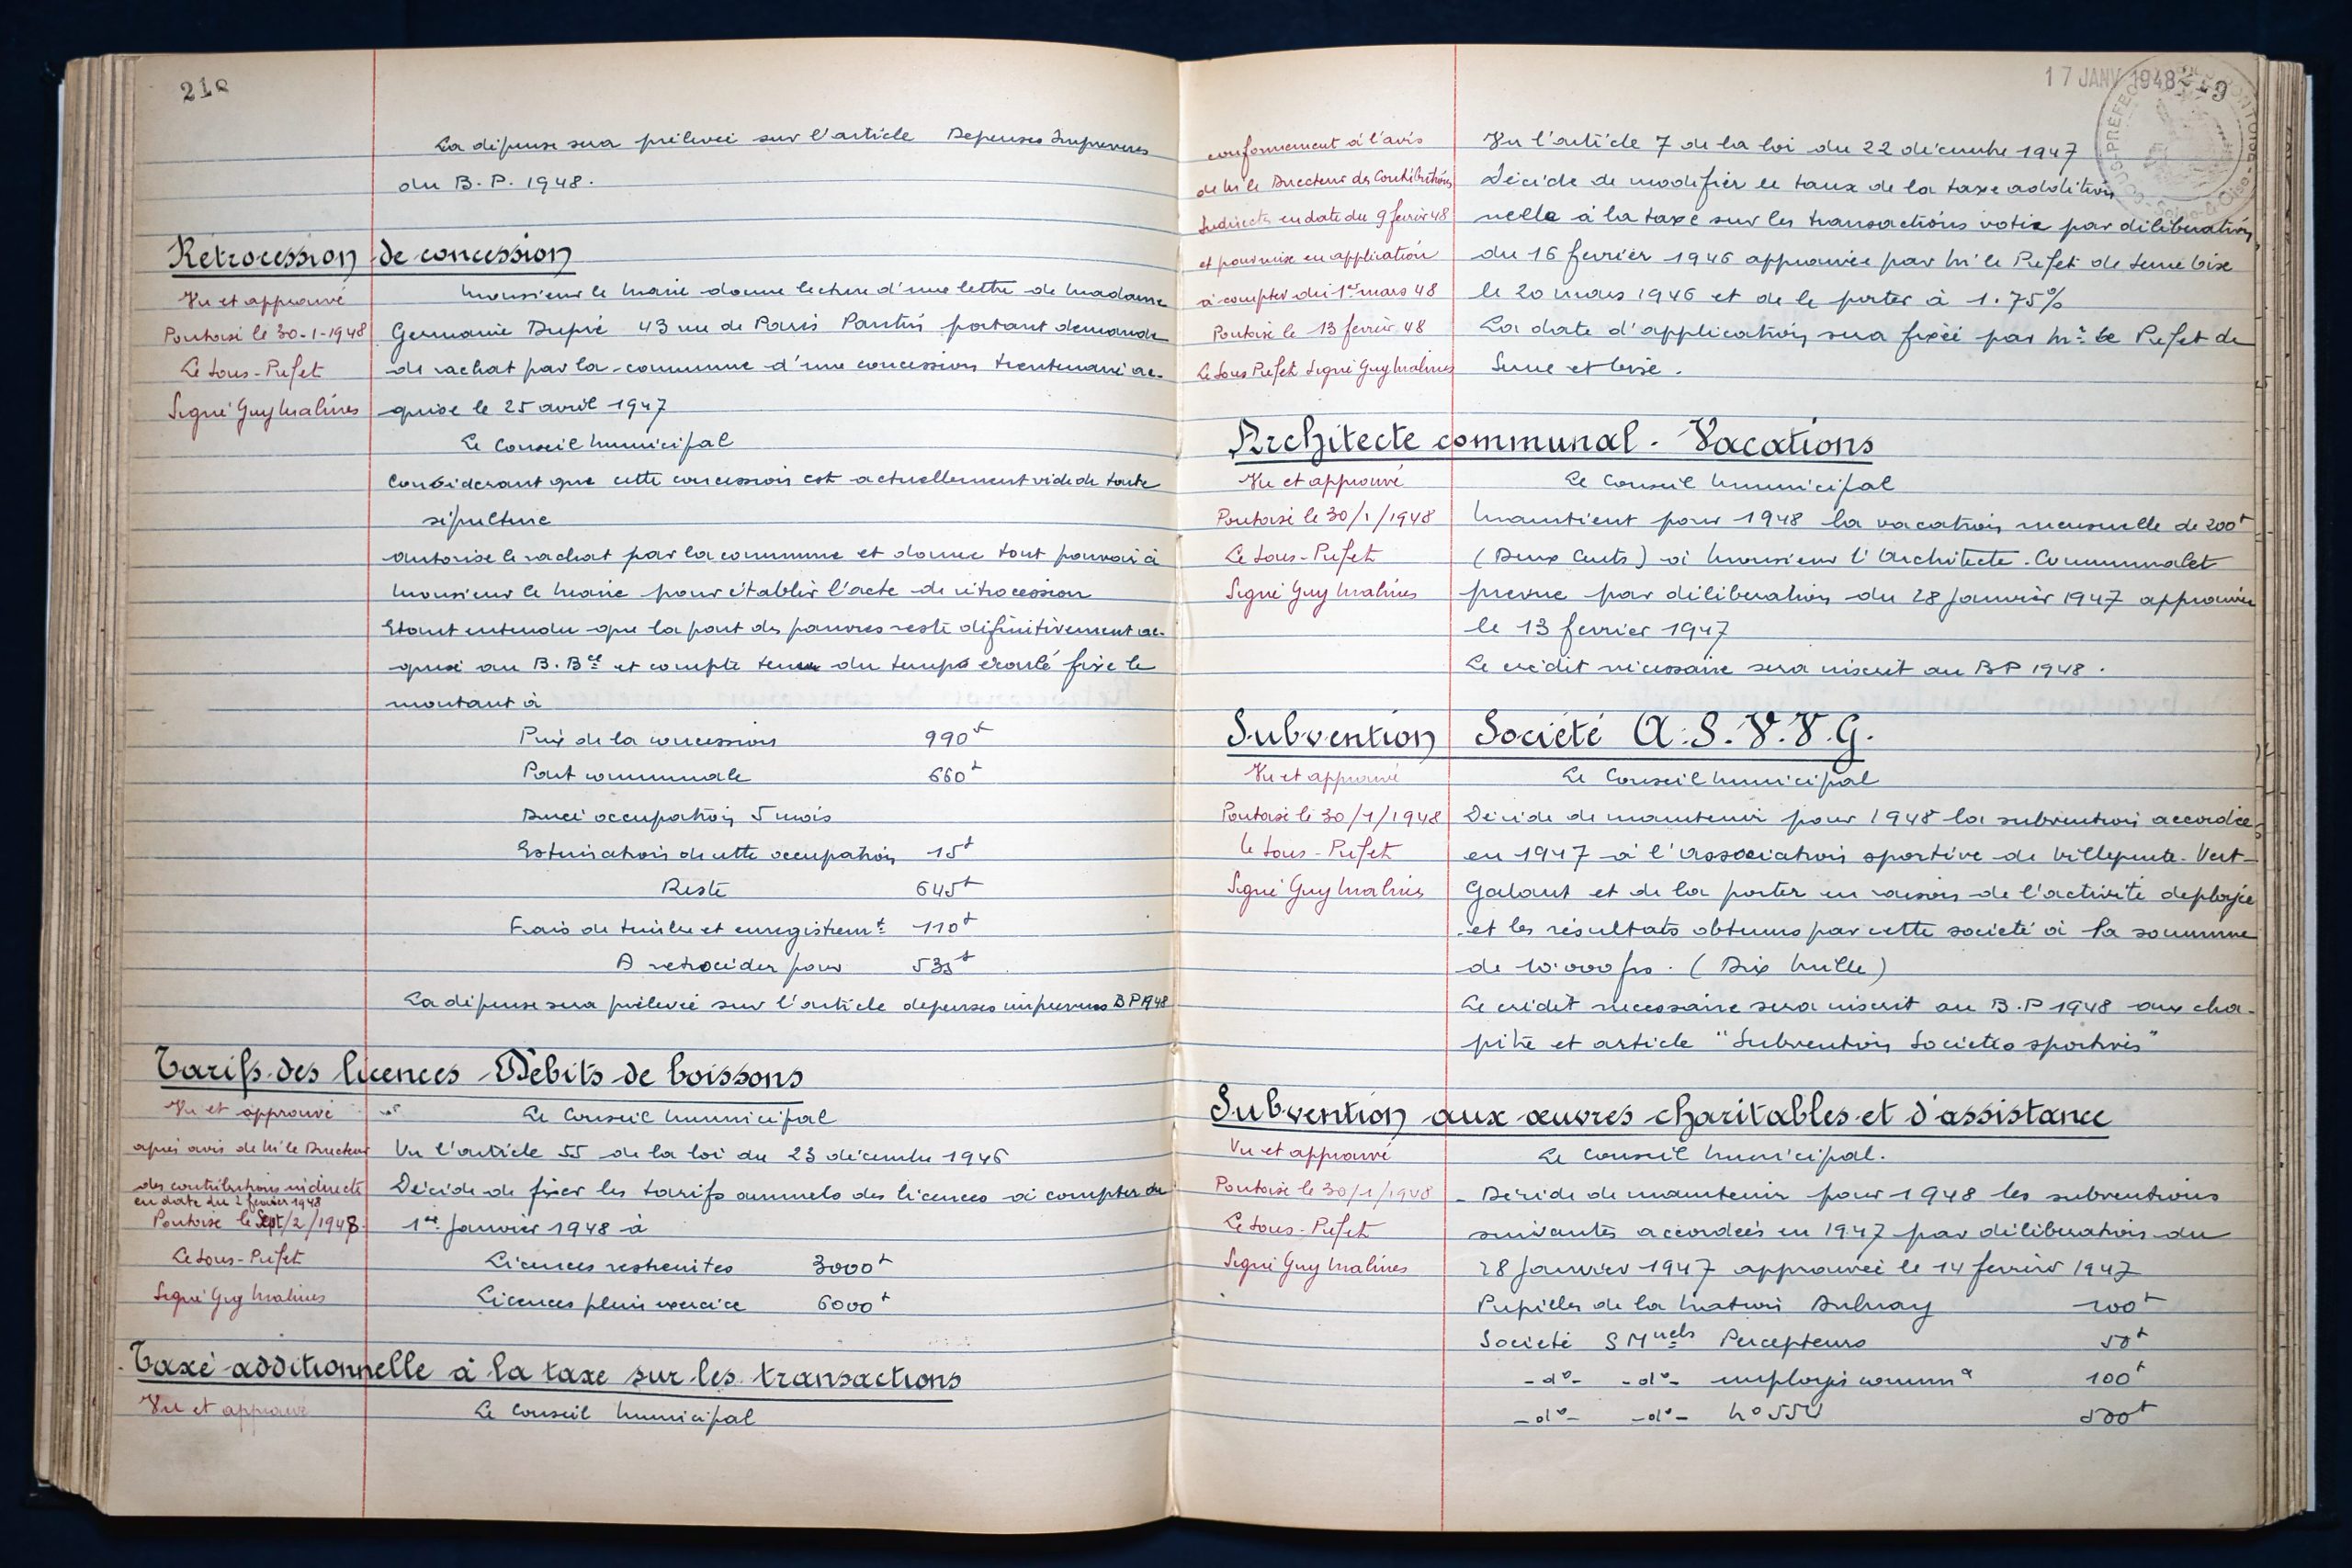 218
La dépense sera prélevée sur l'article Depenses Imprevues
du B.P. 1948.
Rétrocession de concession
Vu et approuvé
Pontoise le 30-1-1948
Le Sous-Prefet
Signé Guy Malines
Monsieur le Maire donne lecture d'une lettre de Madame
Germaine Dupré 43 rue de Paris Pantin portant demande
de rachat par la commune d'une concession trentenaire ac-
quise le 25 avril 1947
Le Conseil Municipal
Considerant que cette concession est actuellement vide de toute
sépulture
Autorise le rachat par la commune et donne tout pouvoir à
Monsieur le Maire pour établir l'acte de rétrocession
Etant entendu que la part des pauvres reste définitivement ac-
quise au B.Bce et compte tenu du temps écoulé fixe le
montant à
Prix de la concession 990f
Part communale 660f
Durée occupation 5 mois
Estimation de cette occupation 15f
Reste 645f
Frais de timbre et enregistremt 110f
A retroceder pour 535f
La dépense sera prélevée sur l'article depenses imprevues BP1948
Tarifs des licences Débits de boissons
Vu et approuvé
après avis de Mr le Directeur
des contributions indirectes
en date du 2 février 1948
Pontoise le Sept/2/1948
Le Sous-Prefet
Signé Guy Malines
Le Conseil Municipal
Vu l'article 55 de la loi du 23 décembre 1946
Décide de fixer les tarifs annuels des licences à compter du
1er Janvier 1948 à
Licences restreintes 3000f
Licences plein exercice 6000f
Taxe additionnelle à la taxe sur les transactions
Vu et approuvé
Le Conseil Municipal
17 JANV 1948
219
SOUS-PREFECTURE PONTOISE Seine-&-Oise
conformement à l'avis
de Mr le Directeur des Contributions
Indirectes en date du 9 fevrier 48
et pour mise en application
à compter du 1er mars 48
Pontoise le 13 fevrier 48
Le Sous Prefet Signé Guy Malines
Vu l'article 7 de la loi du 22 décembre 1947
Décide de modifier le taux de la taxe addition
nelle à la taxe sur les transactions votée par délibération
du 16 fevrier 1946 approuvée par Mr le Prefet de Seine Oise
le 20 mars 1946 et de le porter à 1.75%
La date d'application sera fixée par Mr le Prefet de
Seine et Oise.
Architecte communal. Vacations
Vu et approuvé
Pontoise le 30/1/1948
Le Sous-Prefet
Signé Guy Malines
Le Conseil Municipal
Maintient pour 1948 la vacation mensuelle de 200f
(Deux Cents) à Monsieur l'Architecte Communal et
prevue par délibération du 28 Janvier 1947 approuvée
le 13 fevrier 1947
Le crédit nécessaire sera inscrit au BP 1948.
Subvention Société A.S.V.V.G.
Vu et approuvé
Pontoise le 30/1/1948
le Sous-Prefet
Signé Guy Malines
Le Conseil Municipal
Décide de maintenir pour 1948 la subvention accordée
en 1947 à l'Association sportive de Villepinte-Vert-
Galant et de la porter en raison de l'activité deployée
et les résultats obtenus par cette société à la somme
de 10.000frs. (Dix Mille)
Le crédit necessaire sera inscrit au B.P 1948 aux cha-
pitre et article "Subvention Societes sportives"
Subvention aux œuvres charitables et d'assistance
Vu et approuvé
Pontoise le 30/1/1948
Le Sous-Prefet
Signé Guy Malines
Le Conseil Municipal.
Décide de maintenir pour 1948 les subventions
suivantes accordées en 1947 par délibération du
28 Janvier 1947 approuvée le 14 fevrier 1947
Pupilles de la Nation Aulnay 200f
Societé S Muels Percepteurs 50f
-do- -do- employés commx 100f
-do- -do- No 550 500f